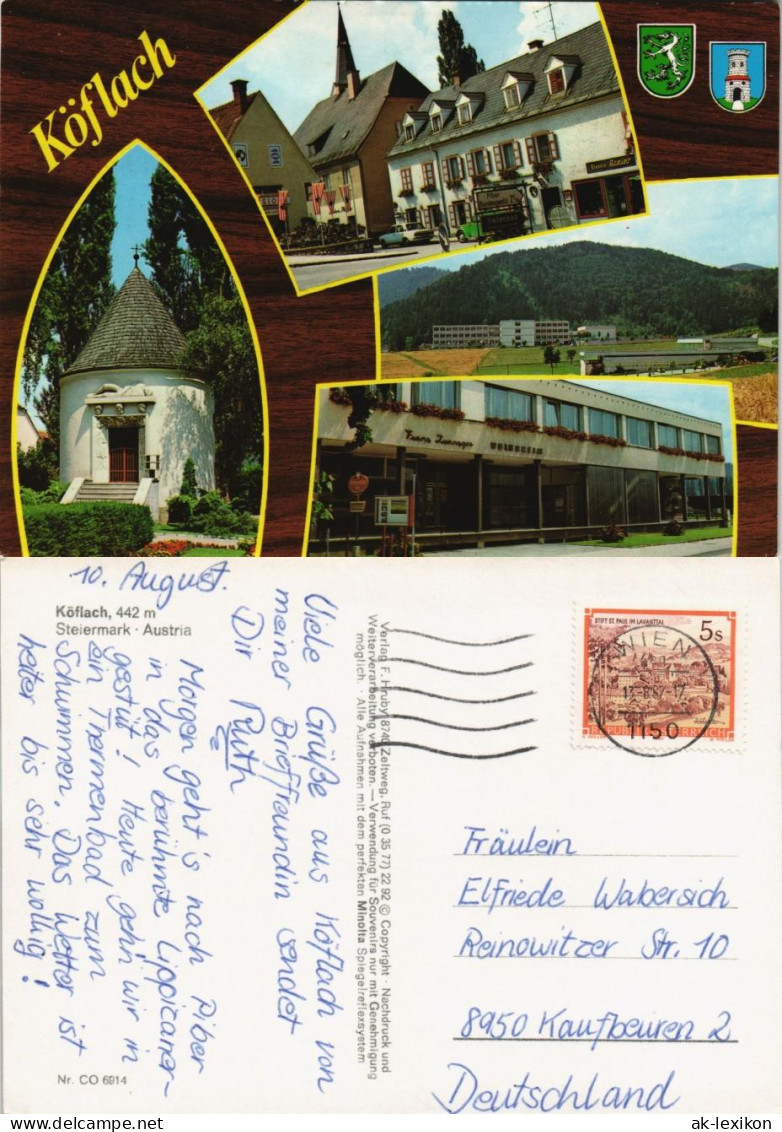 Köflach
10. August.
Köflach, 442 m
Steiermark · Austria
Morgen geht's nach Piber
in das berühmte Lippizaner-
gestüt! Heute geh'n wir in
ein Thermenbad zum
Schwimmen. Das Wetter ist
heiter bis sehr wolkig!
Viele Grüße aus Köflach von
meiner Brieffreundin sendet
Dir Ruth
Nr. CO 6914
Verlag F. Hruby, 8740 Zeltweg, Ruf (0 35 77) 22 92 © Copyright · Nachdruck und
Weiterverarbeitung verboten. — Verwendung für Souvenirs nur mit Genehmigung
möglich · Alle Aufnahmen mit dem perfekten Minolta Spiegelreflexsystem
STIFT ST. PAUL IM LAVANTTAL
5 s
REPUBLIK ÖSTERREICH
WIEN
1150
Fräulein
Elfriede Wabersich
Reinowitzer Str. 10
8950 Kaufbeuren 2
Deutschland
ak-lexikon